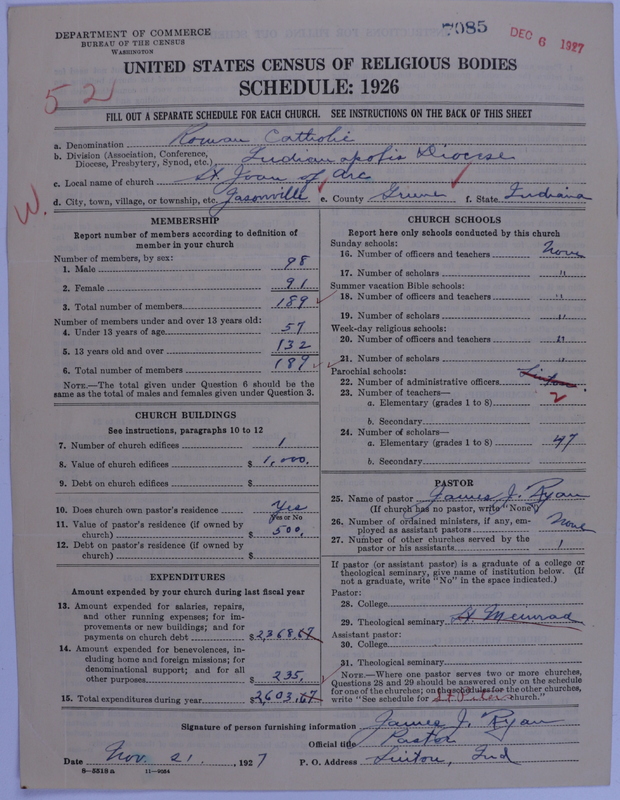 DEPARTMENT OF COMMERCE
BUREAU OF THE CENSUS
WASHINGTON
7085
DEC 6 1927
UNITED STATES CENSUS OF RELIGIOUS BODIES
SCHEDULE: 1926
52
FILL OUT A SEPARATE SCHEDULE FOR EACH CHURCH. SEE INSTRUCTIONS ON THE BACK OF THIS SHEET
a. Denomination Roman Catholic
b. Division (Association, Conference, Diocese, Presbytery, Synod, etc.) Indianapolis Diocese
c. Local name of church St. Joan of Arc
W.
d. City, town, village, or township, etc. Jasonville e. County Greene f. State Indiana
MEMBERSHIP
Report number of members according to definition of
member in your church
Number of members, by sex:
1. Male 98
2. Female 91
3. Total number of members 189
Number of members under and over 13 years old:
4. Under 13 years of age 57
5. 13 years old and over 132
6. Total number of members 189
NOTE.—The total given under Question 6 should be the
same as the total of males and females given under Question 3.
CHURCH BUILDINGS
See instructions, paragraphs 10 to 12
7. Number of church edifices 1
8. Value of church edifices $ 1,000.
9. Debt on church edifices $
10. Does church own pastor's residence Yes
Yes or No
11. Value of pastor's residence (if owned by
church) $ 500.
12. Debt on pastor's residence (if owned by
church) $
EXPENDITURES
Amount expended by your church during last fiscal year
13. Amount expended for salaries, repairs,
and other running expenses; for im-
provements or new buildings; and for
payments on church debt $ 2,368.67
14. Amount expended for benevolences, in-
cluding home and foreign missions; for
denominational support; and for all
other purposes $ 235.
15. Total expenditures during year $ 2,603.67
CHURCH SCHOOLS
Report here only schools conducted by this church
Sunday schools:
16. Number of officers and teachers None
17. Number of scholars "
Summer vacation Bible schools:
18. Number of officers and teachers "
19. Number of scholars "
Week-day religious schools:
20. Number of officers and teachers "
21. Number of scholars "
Parochial schools:
22. Number of administrative officers Linton
23. Number of teachers—
a. Elementary (grades 1 to 8) 2
b. Secondary
24. Number of scholars—
a. Elementary (grades 1 to 8) 47
b. Secondary
PASTOR
25. Name of pastor James J. Ryan
(If church has no pastor, write "None")
26. Number of ordained ministers, if any, em-
ployed as assistant pastors None
27. Number of other churches served by the
pastor or his assistants 1
If pastor (or assistant pastor) is a graduate of a college or
theological seminary, give name of institution below. (If
not a graduate, write "No" in the space indicated.)
Pastor:
28. College
29. Theological seminary St. Meinrad
Assistant pastor:
30. College
31. Theological seminary
NOTE.—Where one pastor serves two or more churches,
Questions 28 and 29 should be answered only on the schedule
for one of the churches; on the schedules for the other churches,
write "See schedule for St Peters church."
Signature of person furnishing information James J. Ryan
Official title Pastor
Date Nov. 21, 1927 P. O. Address Linton, Ind
8—5518a 11—9054